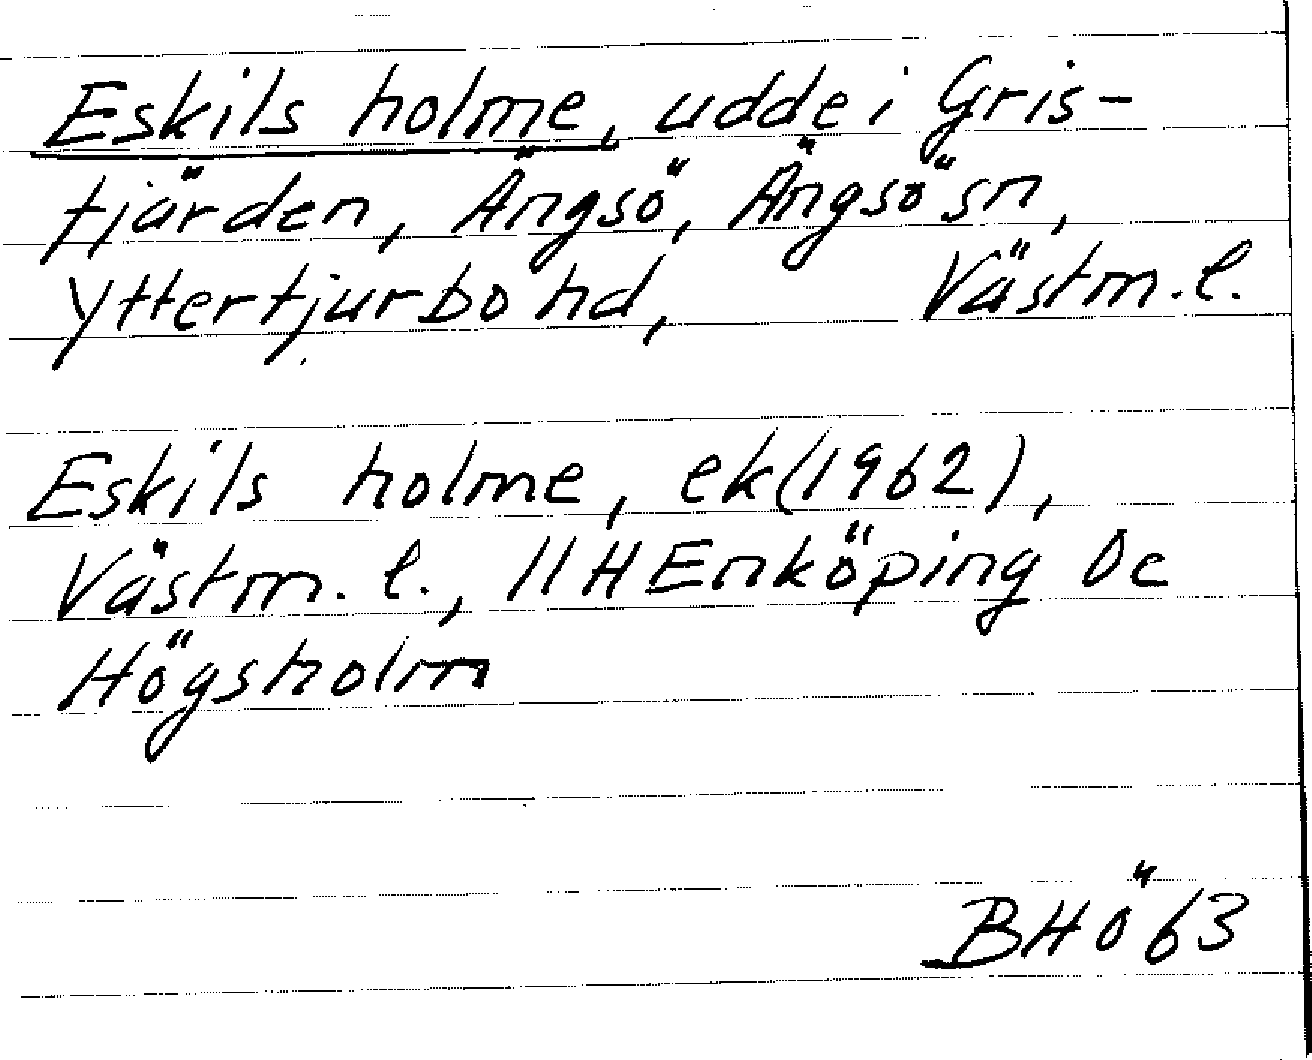 Eskils holme, udde i Gris-
fjärden, Ängsö, Ängsö sn,
Yttertjurbo hd, Västm. l.
Eskils holme, ek (1962),
Västm. l., 11H Enköping 0c
Högsholm
BHÖ 63